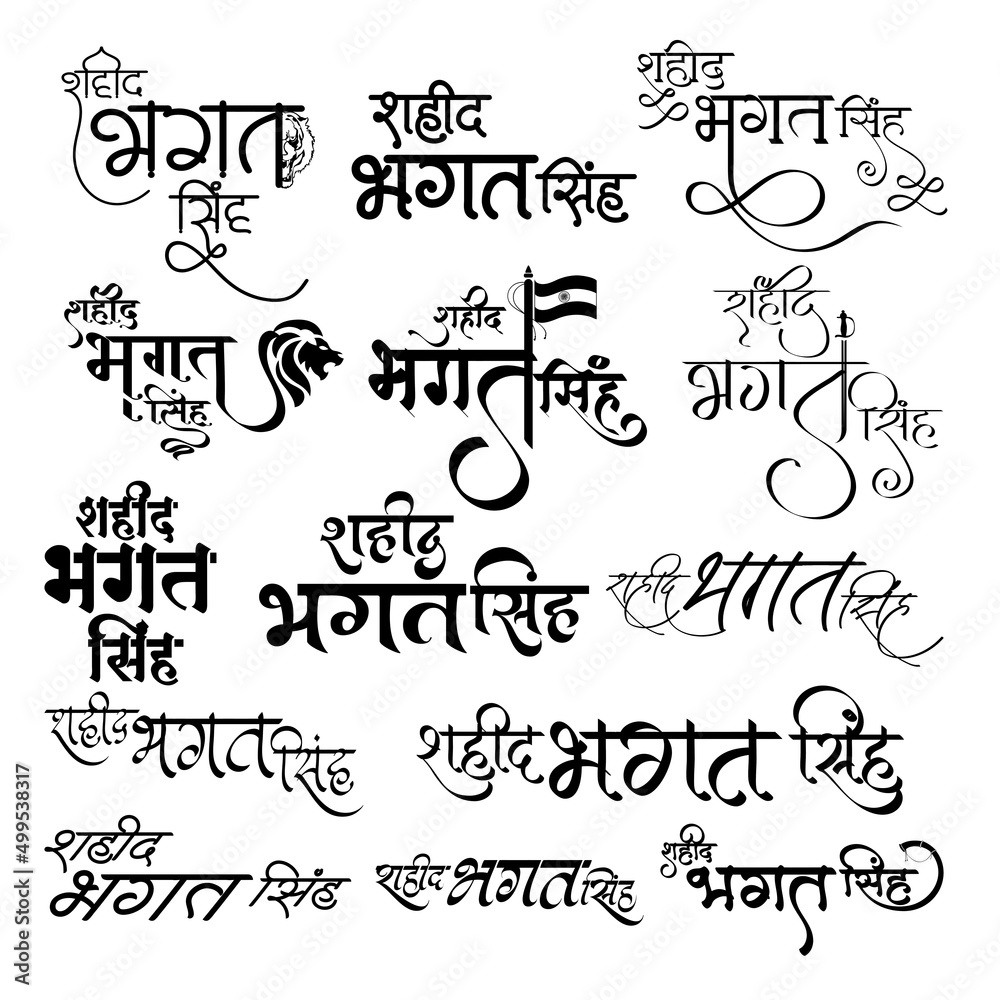 शहीद
भगत
सिंह
शहीद
भगत सिंह
शहीद
भगत सिंह
शहीद
भगत
सिंह
शहीद
भगत सिंह
शहीद
भगत
सिंह
शहीद
भगत
सिंह
शहीद
भगत सिंह
शहीद भगत सिंह
शहीद भगत सिंह
शहीद भगत सिंह
शहीद
भगत सिंह
शहीद भगत सिंह
शहीद
भगत सिंह
Adobe Stock | #499538317